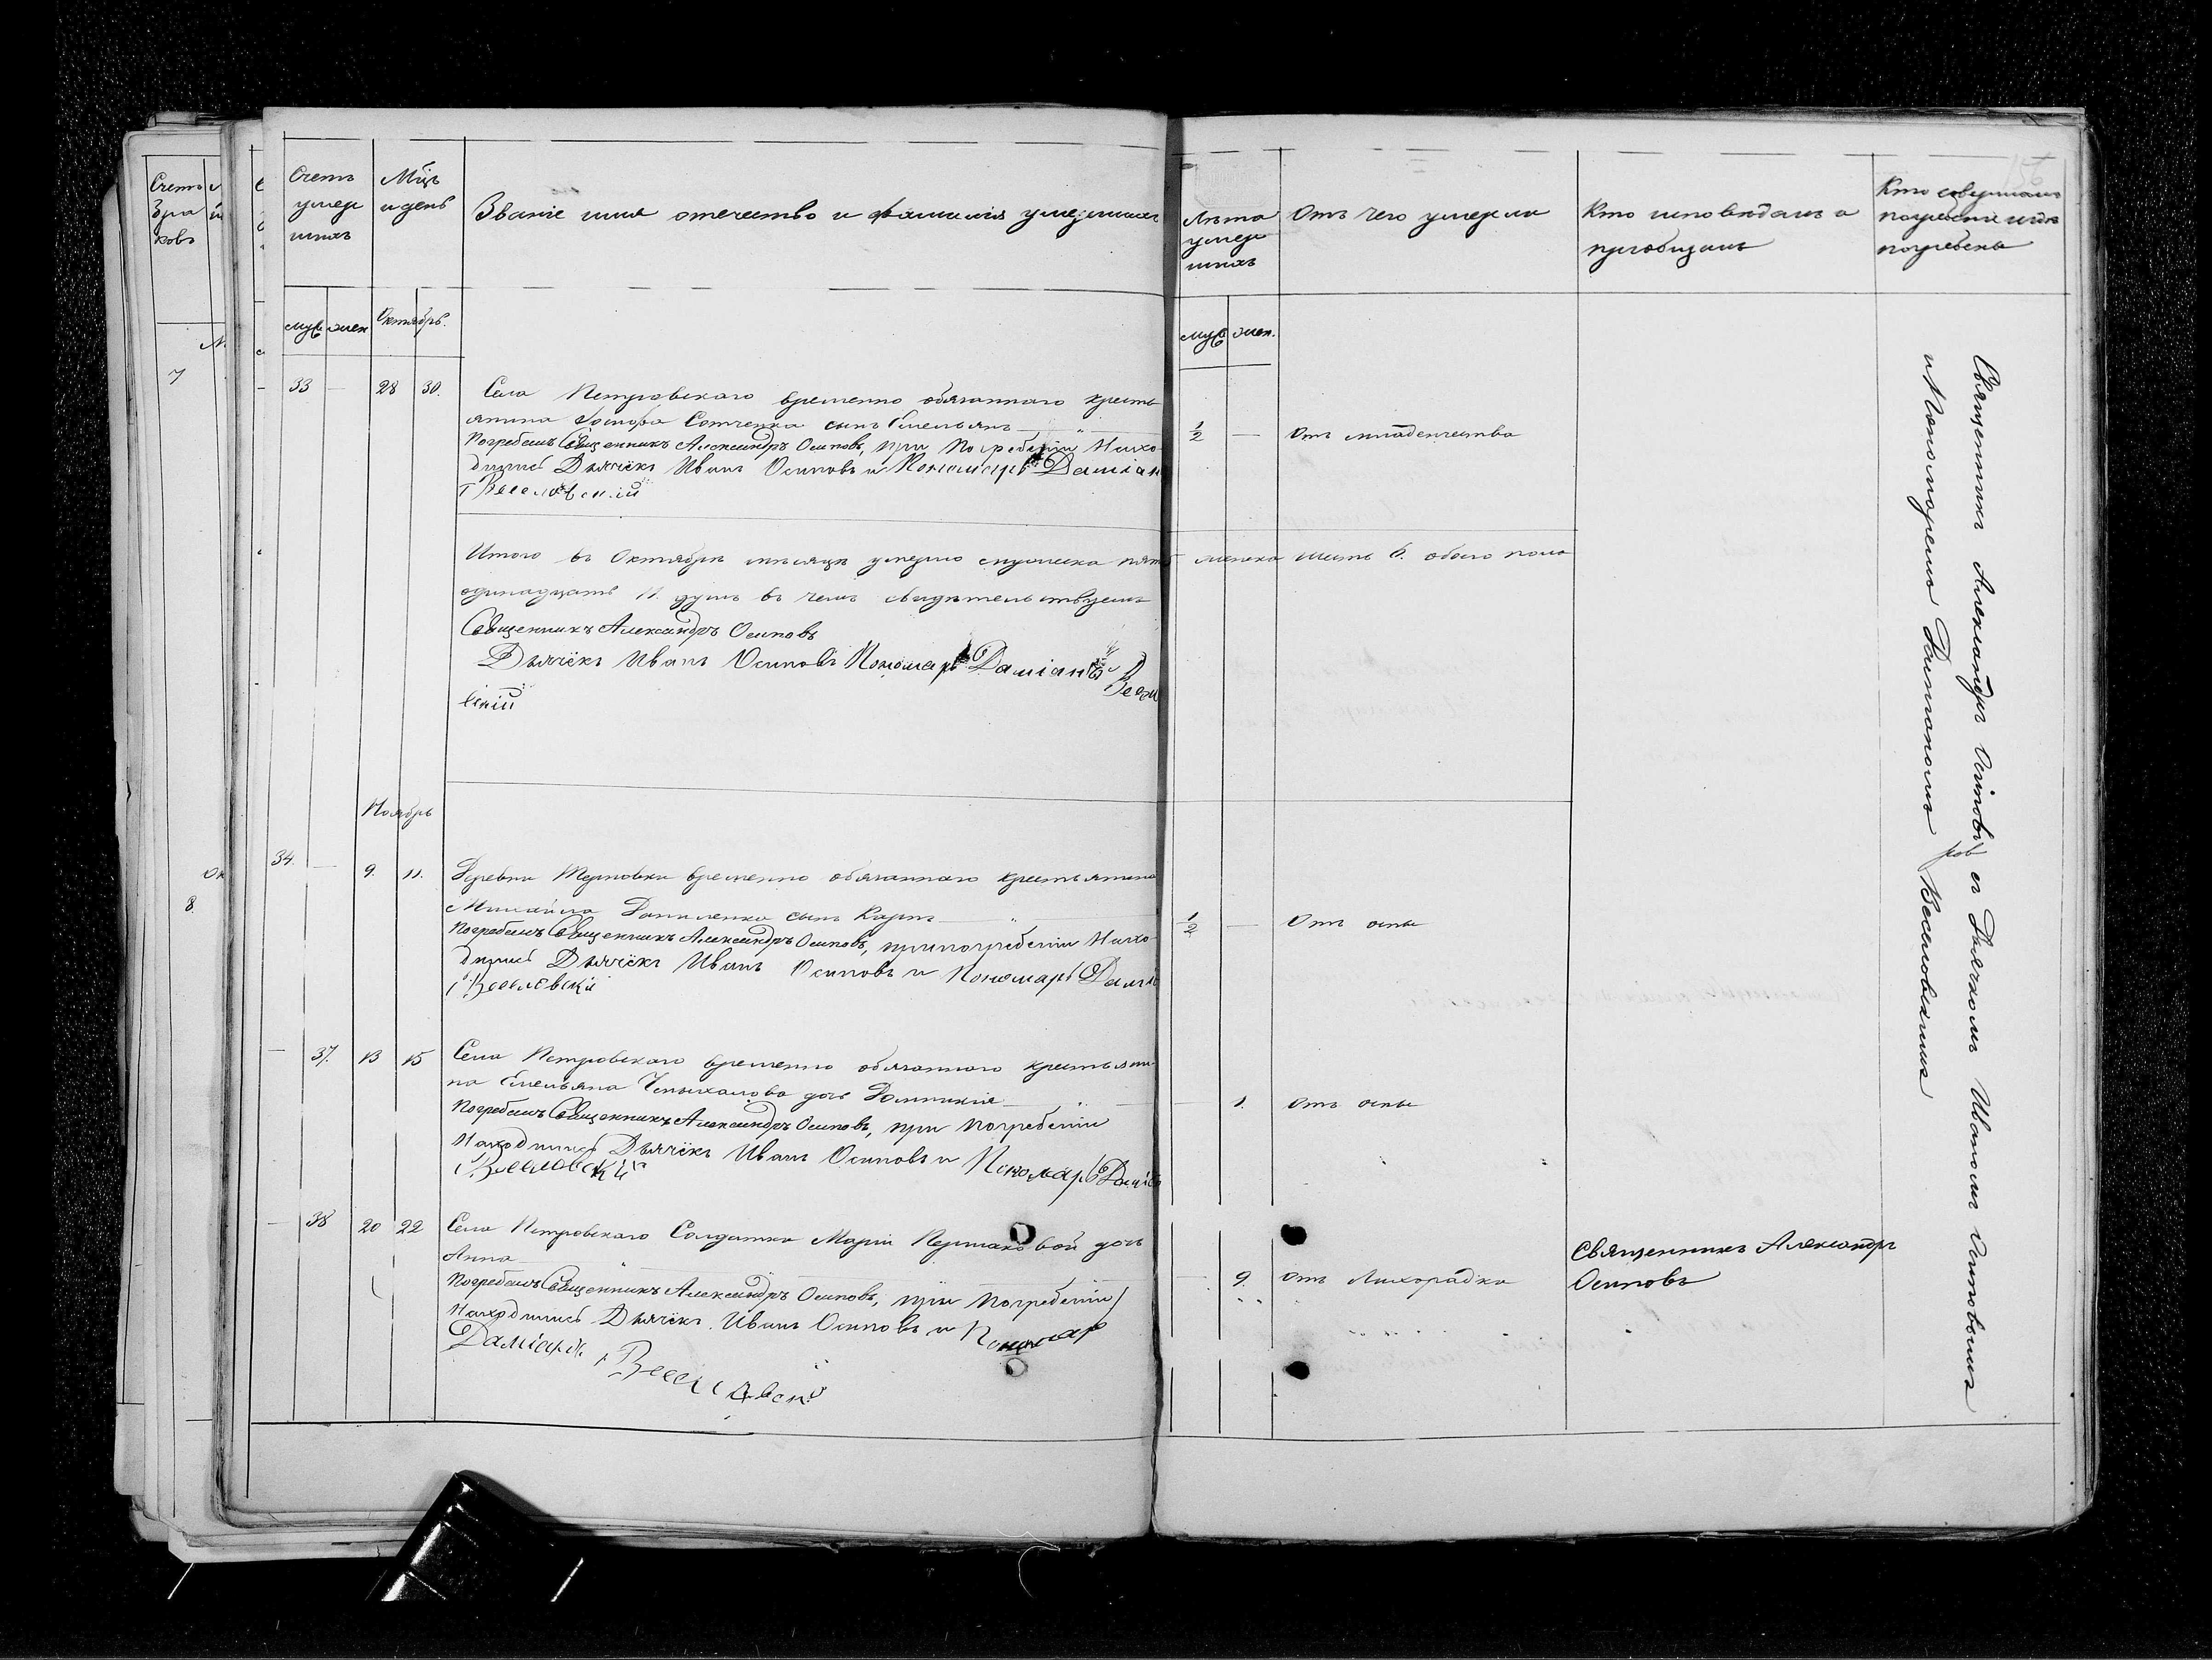 Счетъ
умер
шихъ
Мцъ
и день
Званіе имя отечество и фамилія умершихъ
муж
жен
Октябрь.
33 — 28 30.
Села Петровскаго временно обязаннаго кресть
янина Сотченка сынъ Емельянъ
Погребалъ Священникъ Александръ Осиповъ, при погребеніи Нахо
дились Дьячёкъ Иванъ Осиповъ и Пономарь Даміан
Веселовскій
Итого въ Октябрѣ мѣсяцѣ умерло мужеска пять женска шесть 6. обоего пола
одинадцать 11. душъ въ чемъ свидѣтельствуемъ
Священникъ Александръ Осиповъ
Дьячёкъ Иванъ Осиповъ Пономарь Даміанъ Весел
вскій
Ноябрь
34. — 9. 11.
Деревни Терновки временно обязаннаго крестьянина
Михаила Даниленка сынъ Карпъ
Погребалъ Священникъ Александръ Осиповъ, при погребеніи Нахо
дились Дьячёкъ Иванъ Осиповъ и Пономарь Дамі
Веселовскій
— 37. 13 15
Села Петровскаго временно обязаннаго крестьяни
на Емельяна дочь Домникія
Погребалъ Священникъ Александръ Осиповъ, при погребеніи
Находились Дьячёкъ Иванъ Осиповъ и Пономарь Даміа
Веселовскій
— 38 20 22
Села Петровскаго Солдатки Маріи Пермаковой дочь
Анна
Погребалъ Священникъ Александръ Осиповъ, при Погребеніи
Находились Дьячёкъ Иванъ Осиповъ и Пономар
Даміанъ Веселовскій
Лѣта
умер
шихъ
Отъ чего умерли
Кто исповѣдалъ и
пріобщалъ
Кто совершалъ
погребеніе и гдѣ
погребены
муж
жен.
1/2 — Отъ младенчества
1/2 — Отъ оспы
1. Отъ оспы
9. Отъ Лихорадки
Священникъ Александръ
Осиповъ
Священникъ Александръ Осиповъ съ Дьячкомъ Иваномъ Осиповымъ
и Пономаремъ Даміаномъ Веселовскимъ
Счетъ
бра
ковъ
7
8.